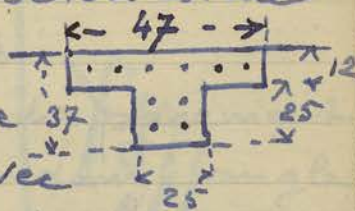 47
12
37
25
25